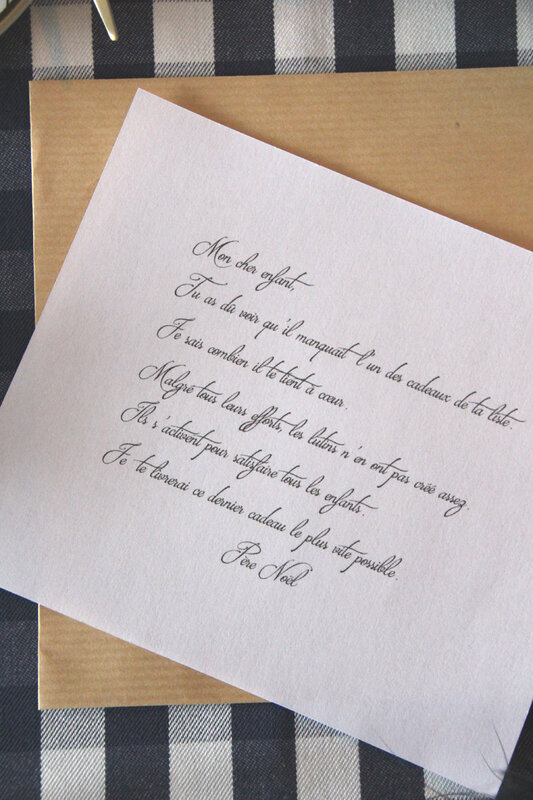 Mon cher enfant,
Tu as dû voir qu'il manquait l'un des cadeaux de ta liste.
Je sais combien il te tient à cœur.
Malgré tous leurs efforts, les lutins n'en ont pas créé assez.
Ils s'activent pour satisfaire tous les enfants.
Je te livrerai ce dernier cadeau le plus vite possible.
Père Noël